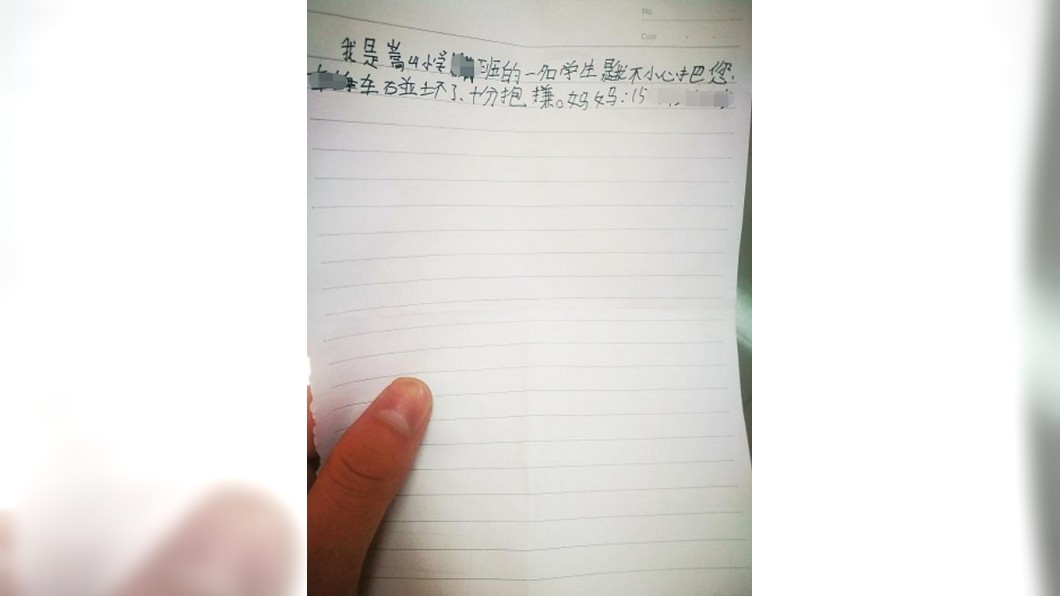 No.
Date
我是嵩山小学班的一名学生我不小心把您
车碰坏了、十分抱歉。妈妈:15